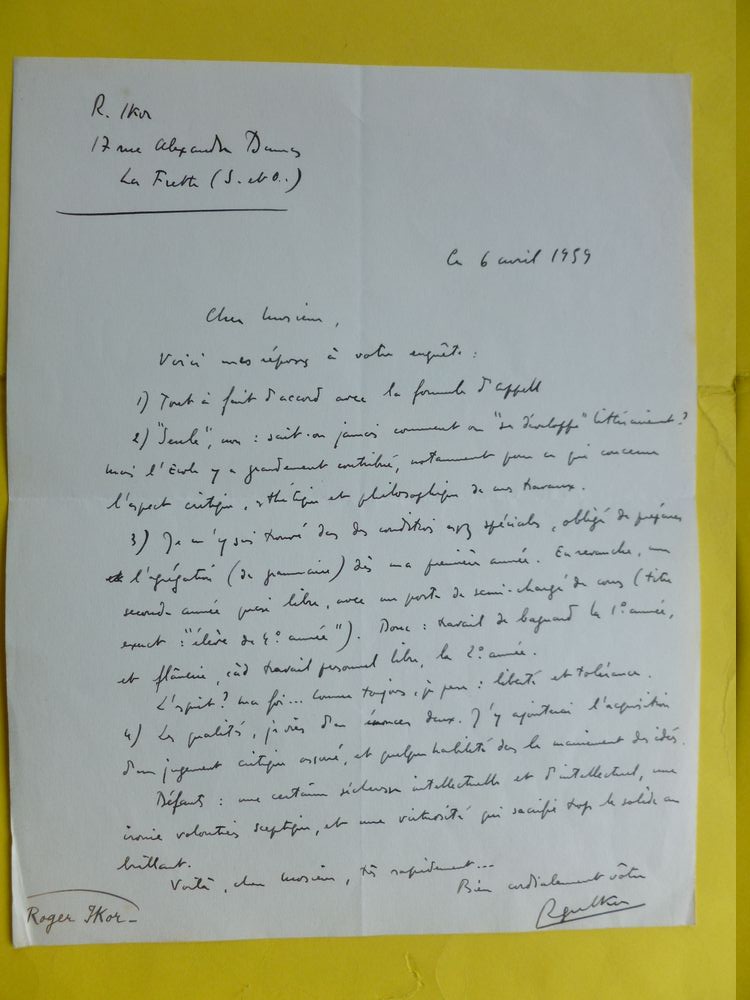 R. Ikor
17 rue Alexandre Dumas
La Frette (S. et O..)
Le 6 avril 1959
Cher Monsieur,
Voici mes réponses à votre enquête :
1) Tout à fait d'accord avec la formule d'appell
2) "Seule", non : sait-on jamais comment on "se développe" littérairement?
mais l'Ecole y a grandement contribué, notamment pour ce qui concerne
l'aspect critique, esthétique et philosophique de mes travaux.
3) Je m'y suis trouvé dans des conditions assez spéciales, obligé de préparer
l'agrégation (de grammaire) dès ma première année. En revanche, une
seconde année quasi libre, avec un poste de semi-chargé de cours (titre
exact : "élève de 4° année"). Donc : travail de bagnard la 1° année,
et flânerie, càd travail personnel libre, la 2° année.
L'esprit? ma foi... comme toujours, je pense : liberté et tolérance.
4) Les qualités, je viens d'en énoncer deux. J'y ajouterai l'acquisition
d'un jugement critique assuré, et quelque habileté dans le maniement des idées.
Défauts : une certaine sécheresse intellectuelle et d'intellectuel, une
ironie volontiers sceptique, et une virtuosité qui sacrifie trop le solide au
brillant.
Voilà, cher Monsieur, très rapidement...
Bien cordialement vôtre
Roger Ikor
Roger Ikor_